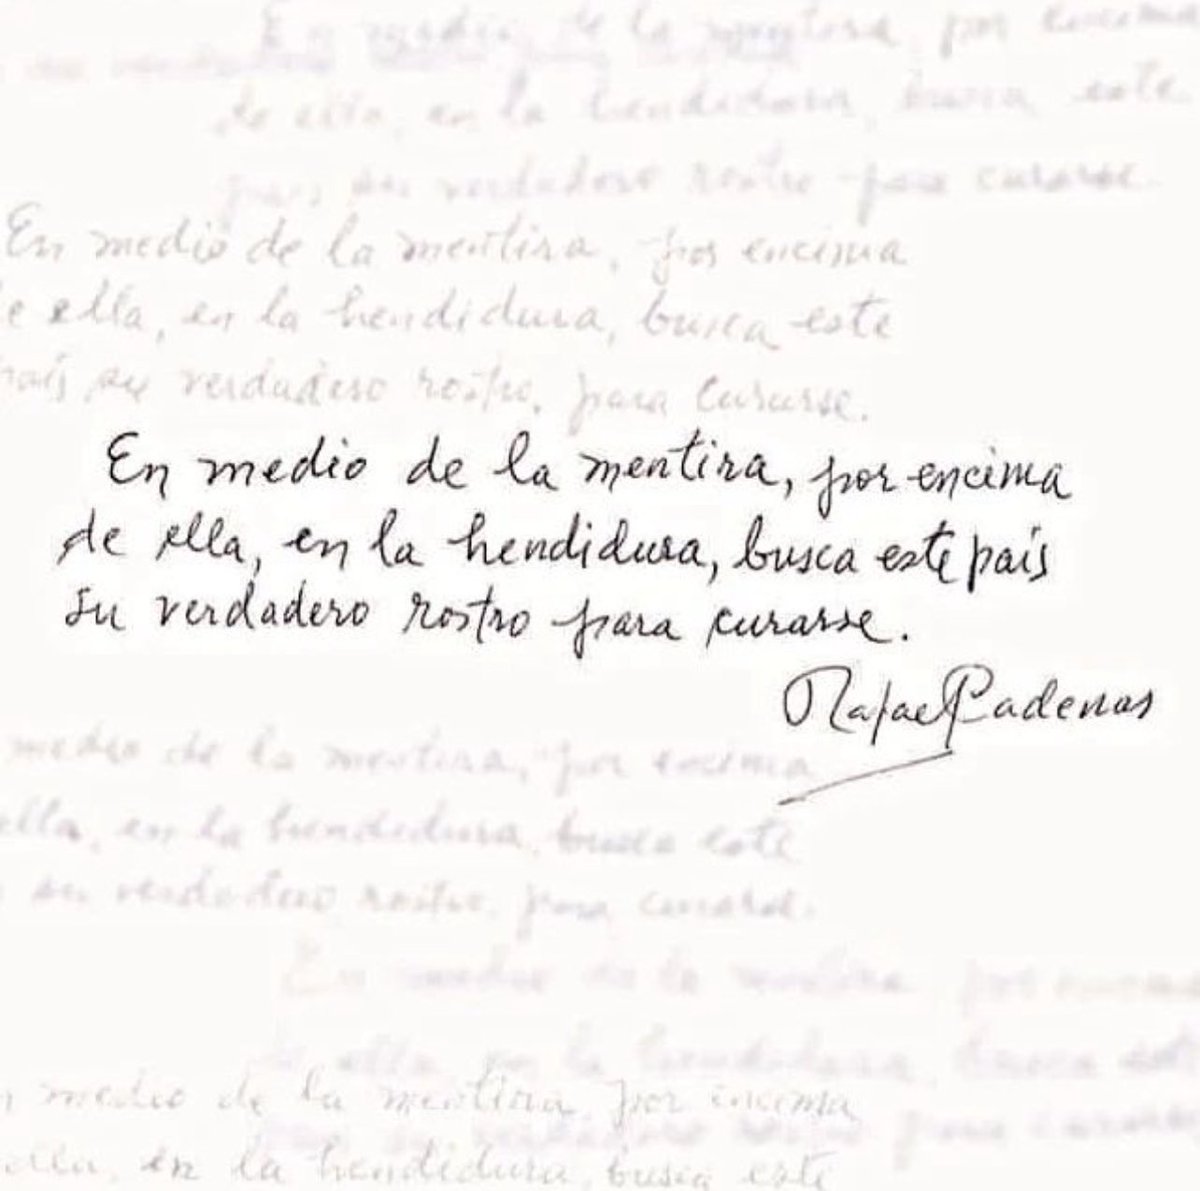 En medio de la mentira, por encima
de ella, en la hendidura, busca este
país su verdadero rostro para curarse.
En medio de la mentira, por encima
e ella, en la hendidura, busca este
país su verdadero rostro, para curarse.
En medio de la mentira, por encima
de ella, en la hendidura, busca este país
su verdadero rostro para curarse.
Rafael Cadenas
medio de la mentira, por encima
ella, en la hendidura, busca este
su verdadero rostro, para curarse.
En medio de la mentira por
de ella en la hendidura, busca
medio de la mentira, por encima
ella, en la hendidura, busca este